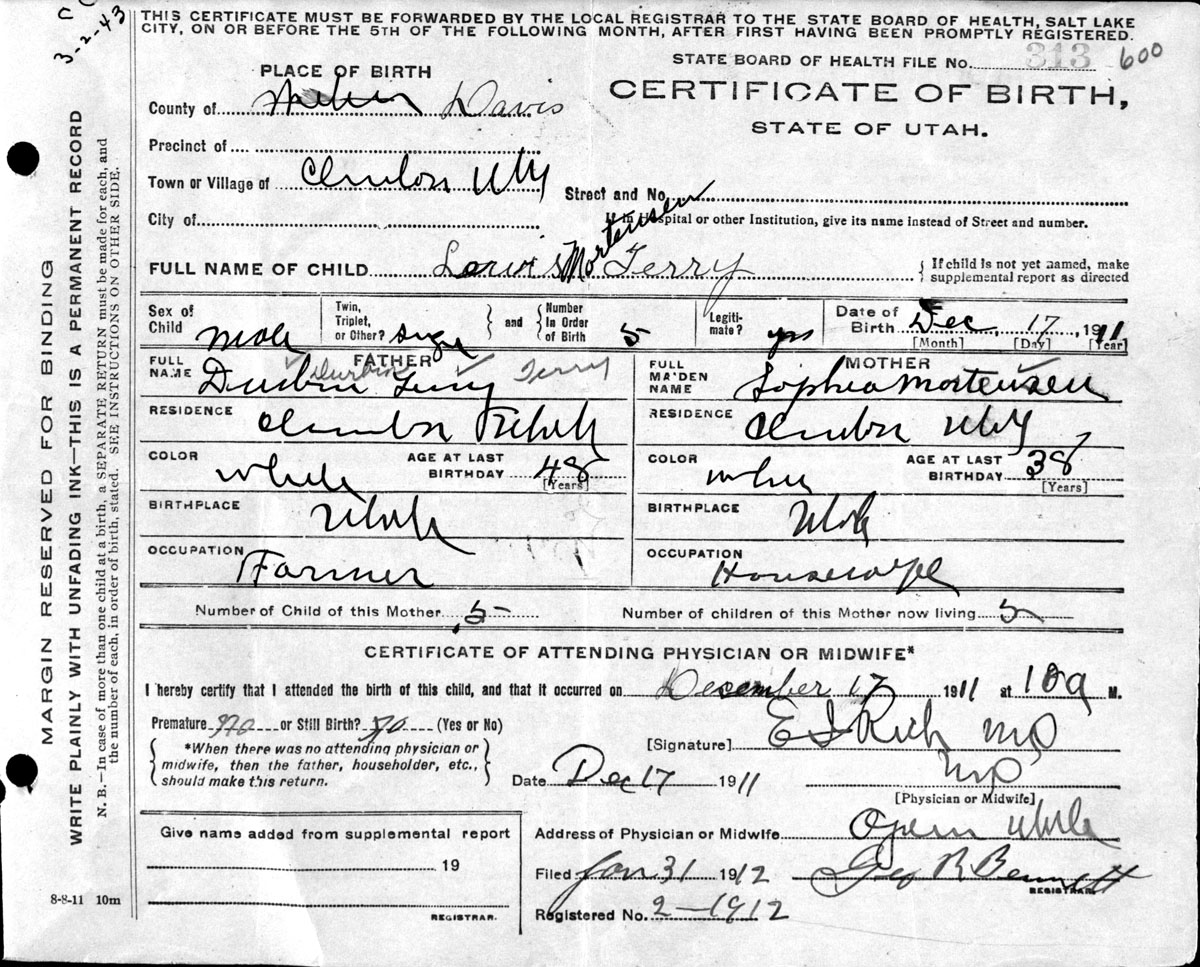 C C
3-2-43
THIS CERTIFICATE MUST BE FORWARDED BY THE LOCAL REGISTRAR TO THE STATE BOARD OF HEALTH, SALT LAKE
CITY, ON OR BEFORE THE 5TH OF THE FOLLOWING MONTH, AFTER FIRST HAVING BEEN PROMPTLY REGISTERED.
STATE BOARD OF HEALTH FILE No. 313 600
PLACE OF BIRTH
CERTIFICATE OF BIRTH,
STATE OF UTAH.
County of Davis
Precinct of
Town or Village of Clinton Utah
Street and No.
City of
If in Hospital or other Institution, give its name instead of Street and number.
Mortensen
FULL NAME OF CHILD Lewis Terry
{ If child is not yet named, make
supplemental report as directed
Sex of Child male
Twin, Triplet, or Other? single
and
Number in Order of Birth 5
Legitimate? yes
Date of Birth Dec 17, 1911
[Month] [Day] [Year]
FATHER
FULL NAME Durbin Terry Durbin Terry
RESIDENCE Clinton Utah
COLOR White
AGE AT LAST BIRTHDAY 48
[Years]
BIRTHPLACE Utah
OCCUPATION Farmer
MOTHER
FULL MAIDEN NAME Sophia Mortensen
RESIDENCE Clinton Utah
COLOR white
AGE AT LAST BIRTHDAY 38
[Years]
BIRTHPLACE Utah
OCCUPATION Housewife
Number of Child of this Mother 5
Number of children of this Mother now living 5
CERTIFICATE OF ATTENDING PHYSICIAN OR MIDWIFE*
I hereby certify that I attended the birth of this child, and that it occurred on December 17 1911 at 10 a M.
Premature no or Still Birth? no (Yes or No)
{ *When there was no attending physician or
midwife, then the father, householder, etc.,
should make this return. }
[Signature] E I Rich MD
MD
Date Dec 17 1911
[Physician or Midwife]
Give name added from supplemental report
19
REGISTRAR.
Address of Physician or Midwife Ogden Utah
Filed Jan 31 1912 Geo R Bennett
REGISTRAR.
Registered No. 2-1912
8-8-11 10m
MARGIN RESERVED FOR BINDING
WRITE PLAINLY WITH UNFADING INK—THIS IS A PERMANENT RECORD
N. B.—In case of more than one child at a birth, a SEPARATE RETURN must be made for each, and
the number of each, in order of birth, stated. SEE INSTRUCTIONS ON OTHER SIDE.